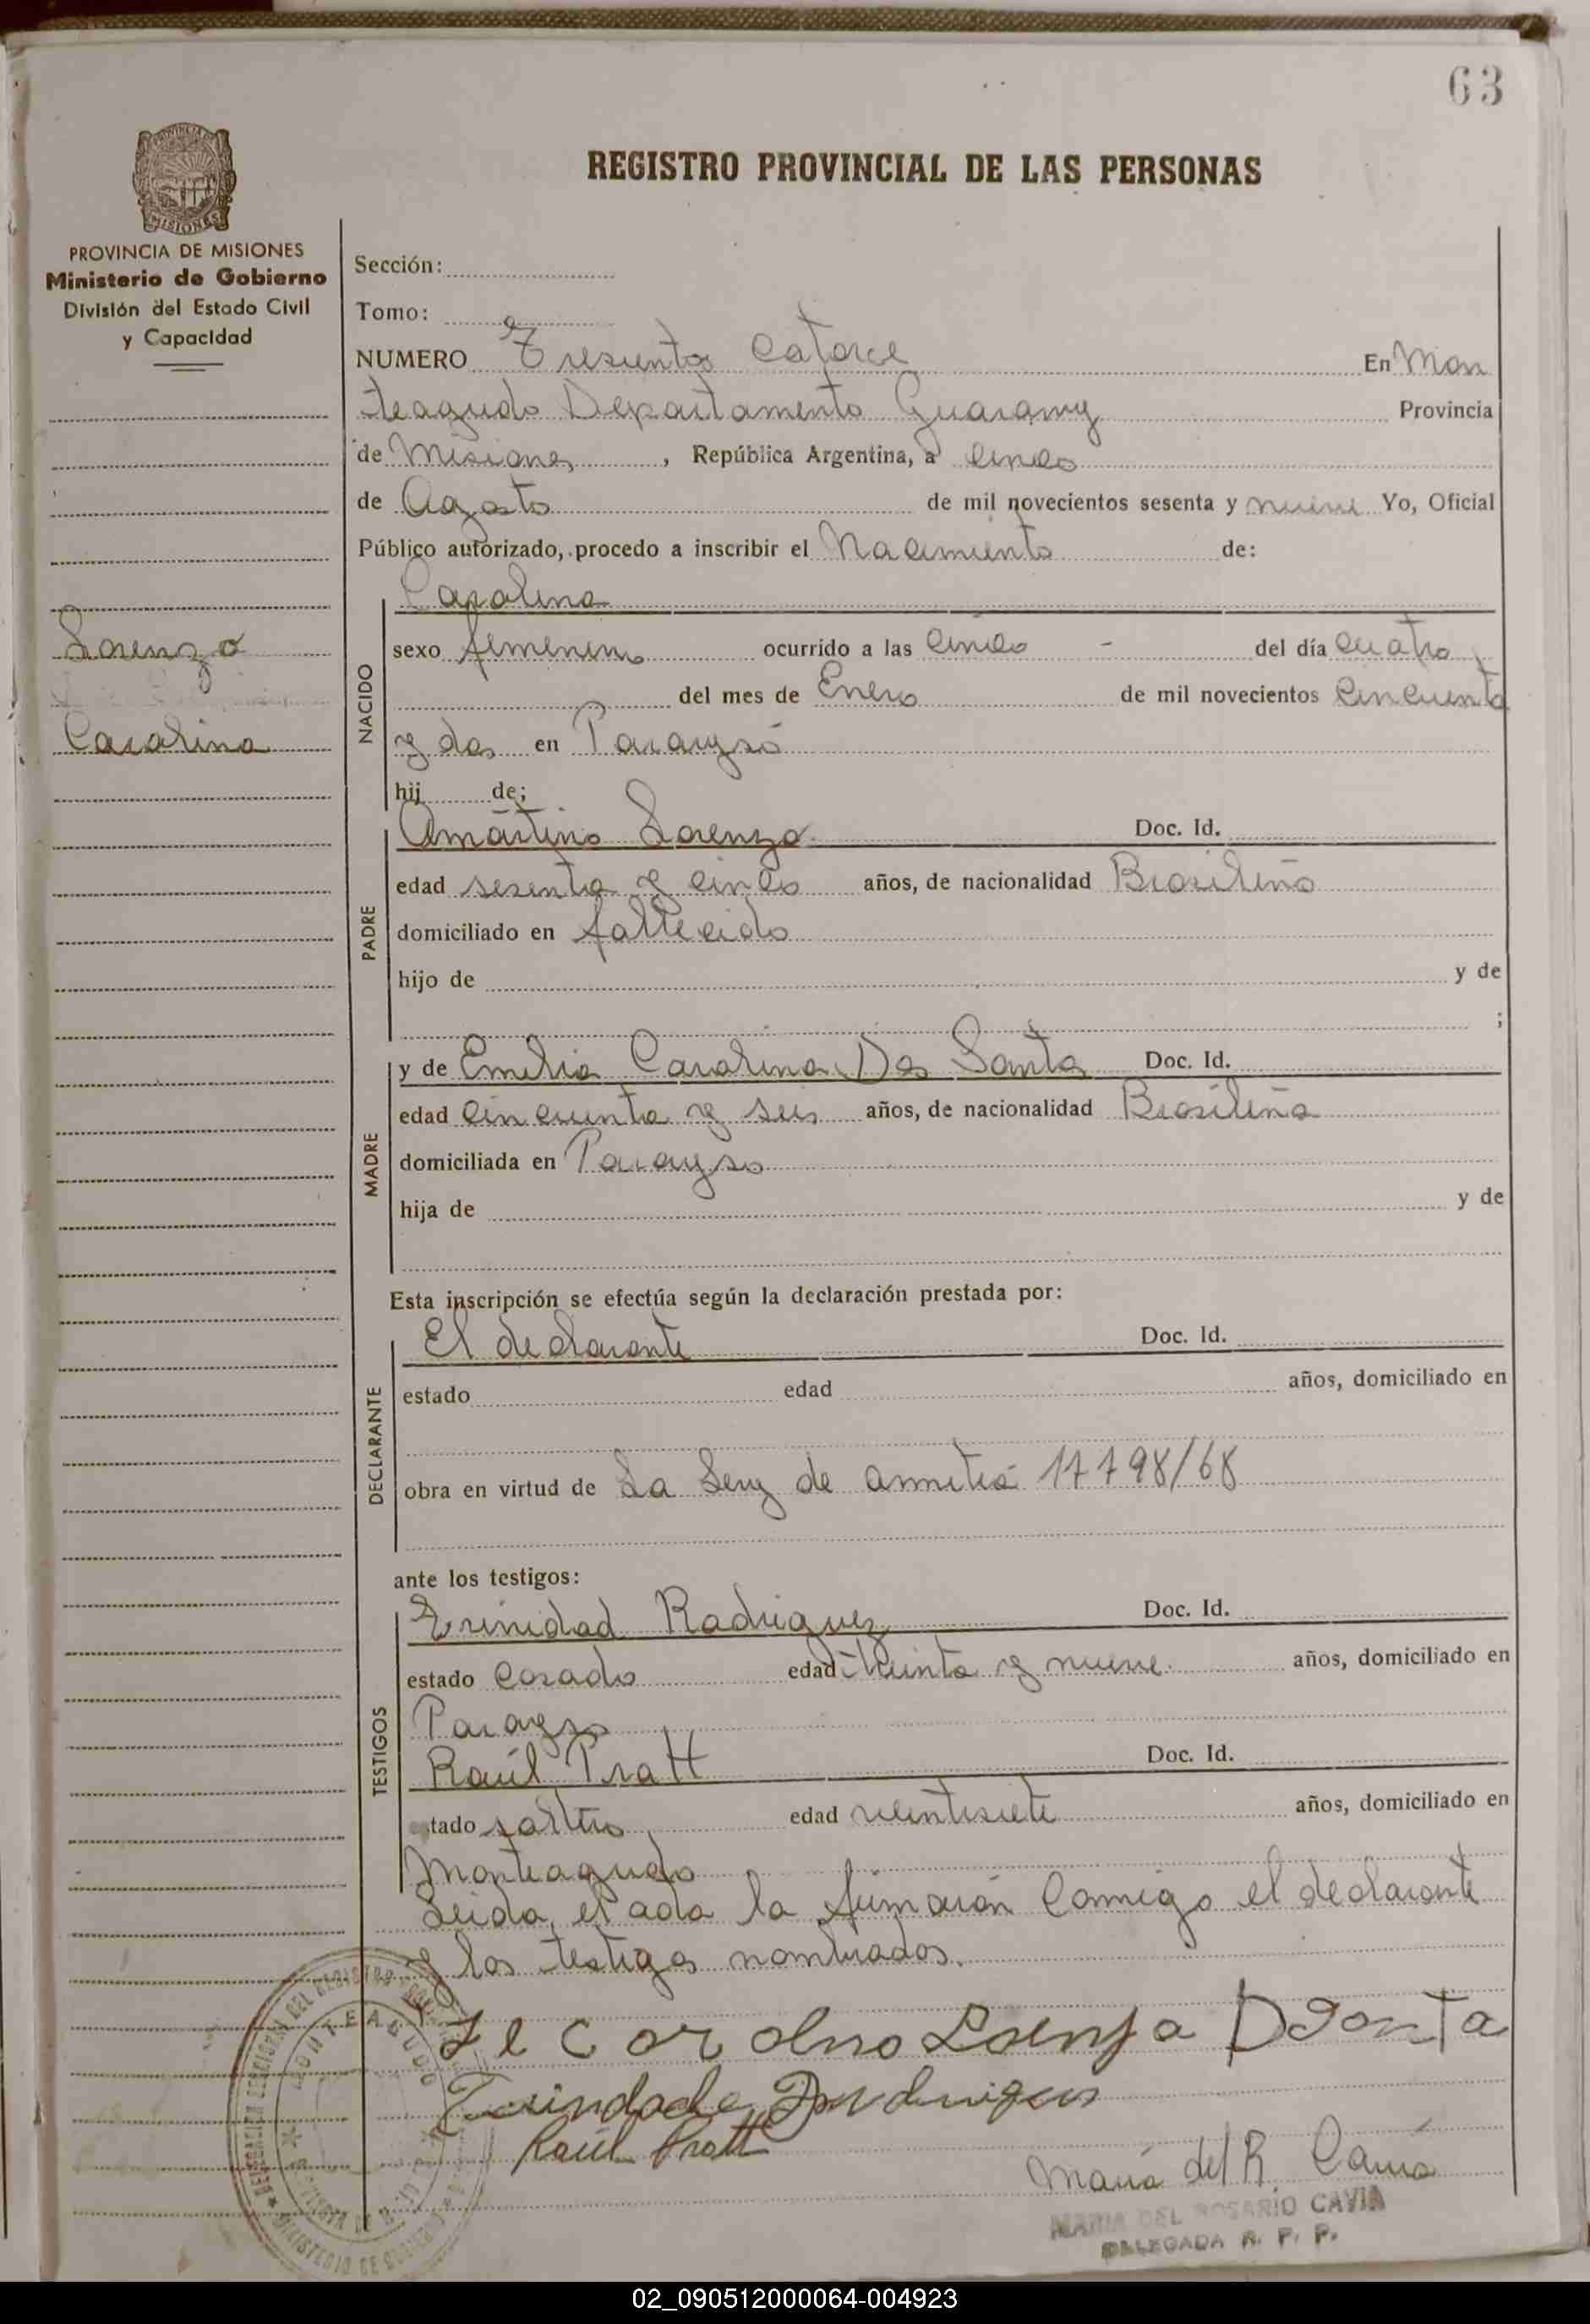 63
REGISTRO PROVINCIAL DE LAS PERSONAS
PROVINCIA DE MISIONES
MISIONES
PROVINCIA DE MISIONES
Ministerio de Gobierno
División del Estado Civil
y Capacidad
Lorenzo
Carolina
Sección:
Tomo:
NUMERO Tresientos Catorce En Mon
teagudo Departamento Guarany Provincia
de Misiones, República Argentina, a cinco
de Agosto de mil novecientos sesenta y nueve Yo, Oficial
Público autorizado, procedo a inscribir el Nacimiento de:
NACIDO
Carolina
sexo femenino ocurrido a las cinco - del día cuatro
del mes de Enero de mil novecientos cincuenta
y dos en Parayso
hij de;
PADRE
Amartino Lorenzo Doc. Id.
edad sesenta y cinco años, de nacionalidad Brasileño
domiciliado en fallecido
hijo de y de
;
MADRE
y de Emilia Carolina Dos Santos Doc. Id.
edad cincuenta y seis años, de nacionalidad Brasileña
domiciliada en Parayso
hija de y de
Esta inscripción se efectúa según la declaración prestada por:
DECLARANTE
El declarante Doc. Id.
estado edad años, domiciliado en
obra en virtud de La Ley de 17798/68
ante los testigos:
TESTIGOS
Trinidad Rodriguez Doc. Id.
estado Casado edad treinta y nueve años, domiciliado en
Parayso
Raúl Pratt Doc. Id.
tado soltero edad veintisiete años, domiciliado en
Monteagudo
Leida el acta la firmarón Comigo el declarante
y los testigos nombrados.
Raúl Pratt
María del R.
MARIA DEL ROSARIO CAVIA
DELEGADA R. P. P.
MONTEAGUDO
02_090512000064-004923